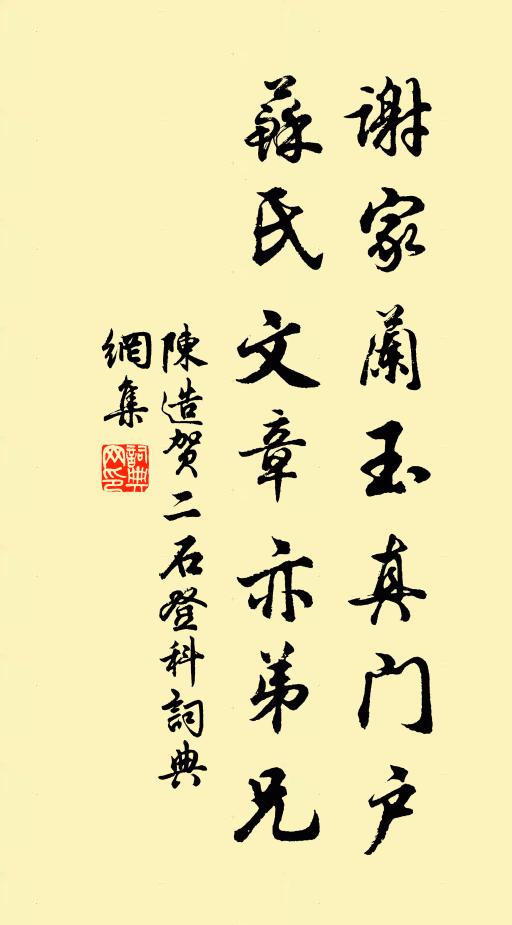 谢家蘭玉真门户
蘇氏文章亦弟兄
陳造贺二石登科詞典
網集
詞典网印